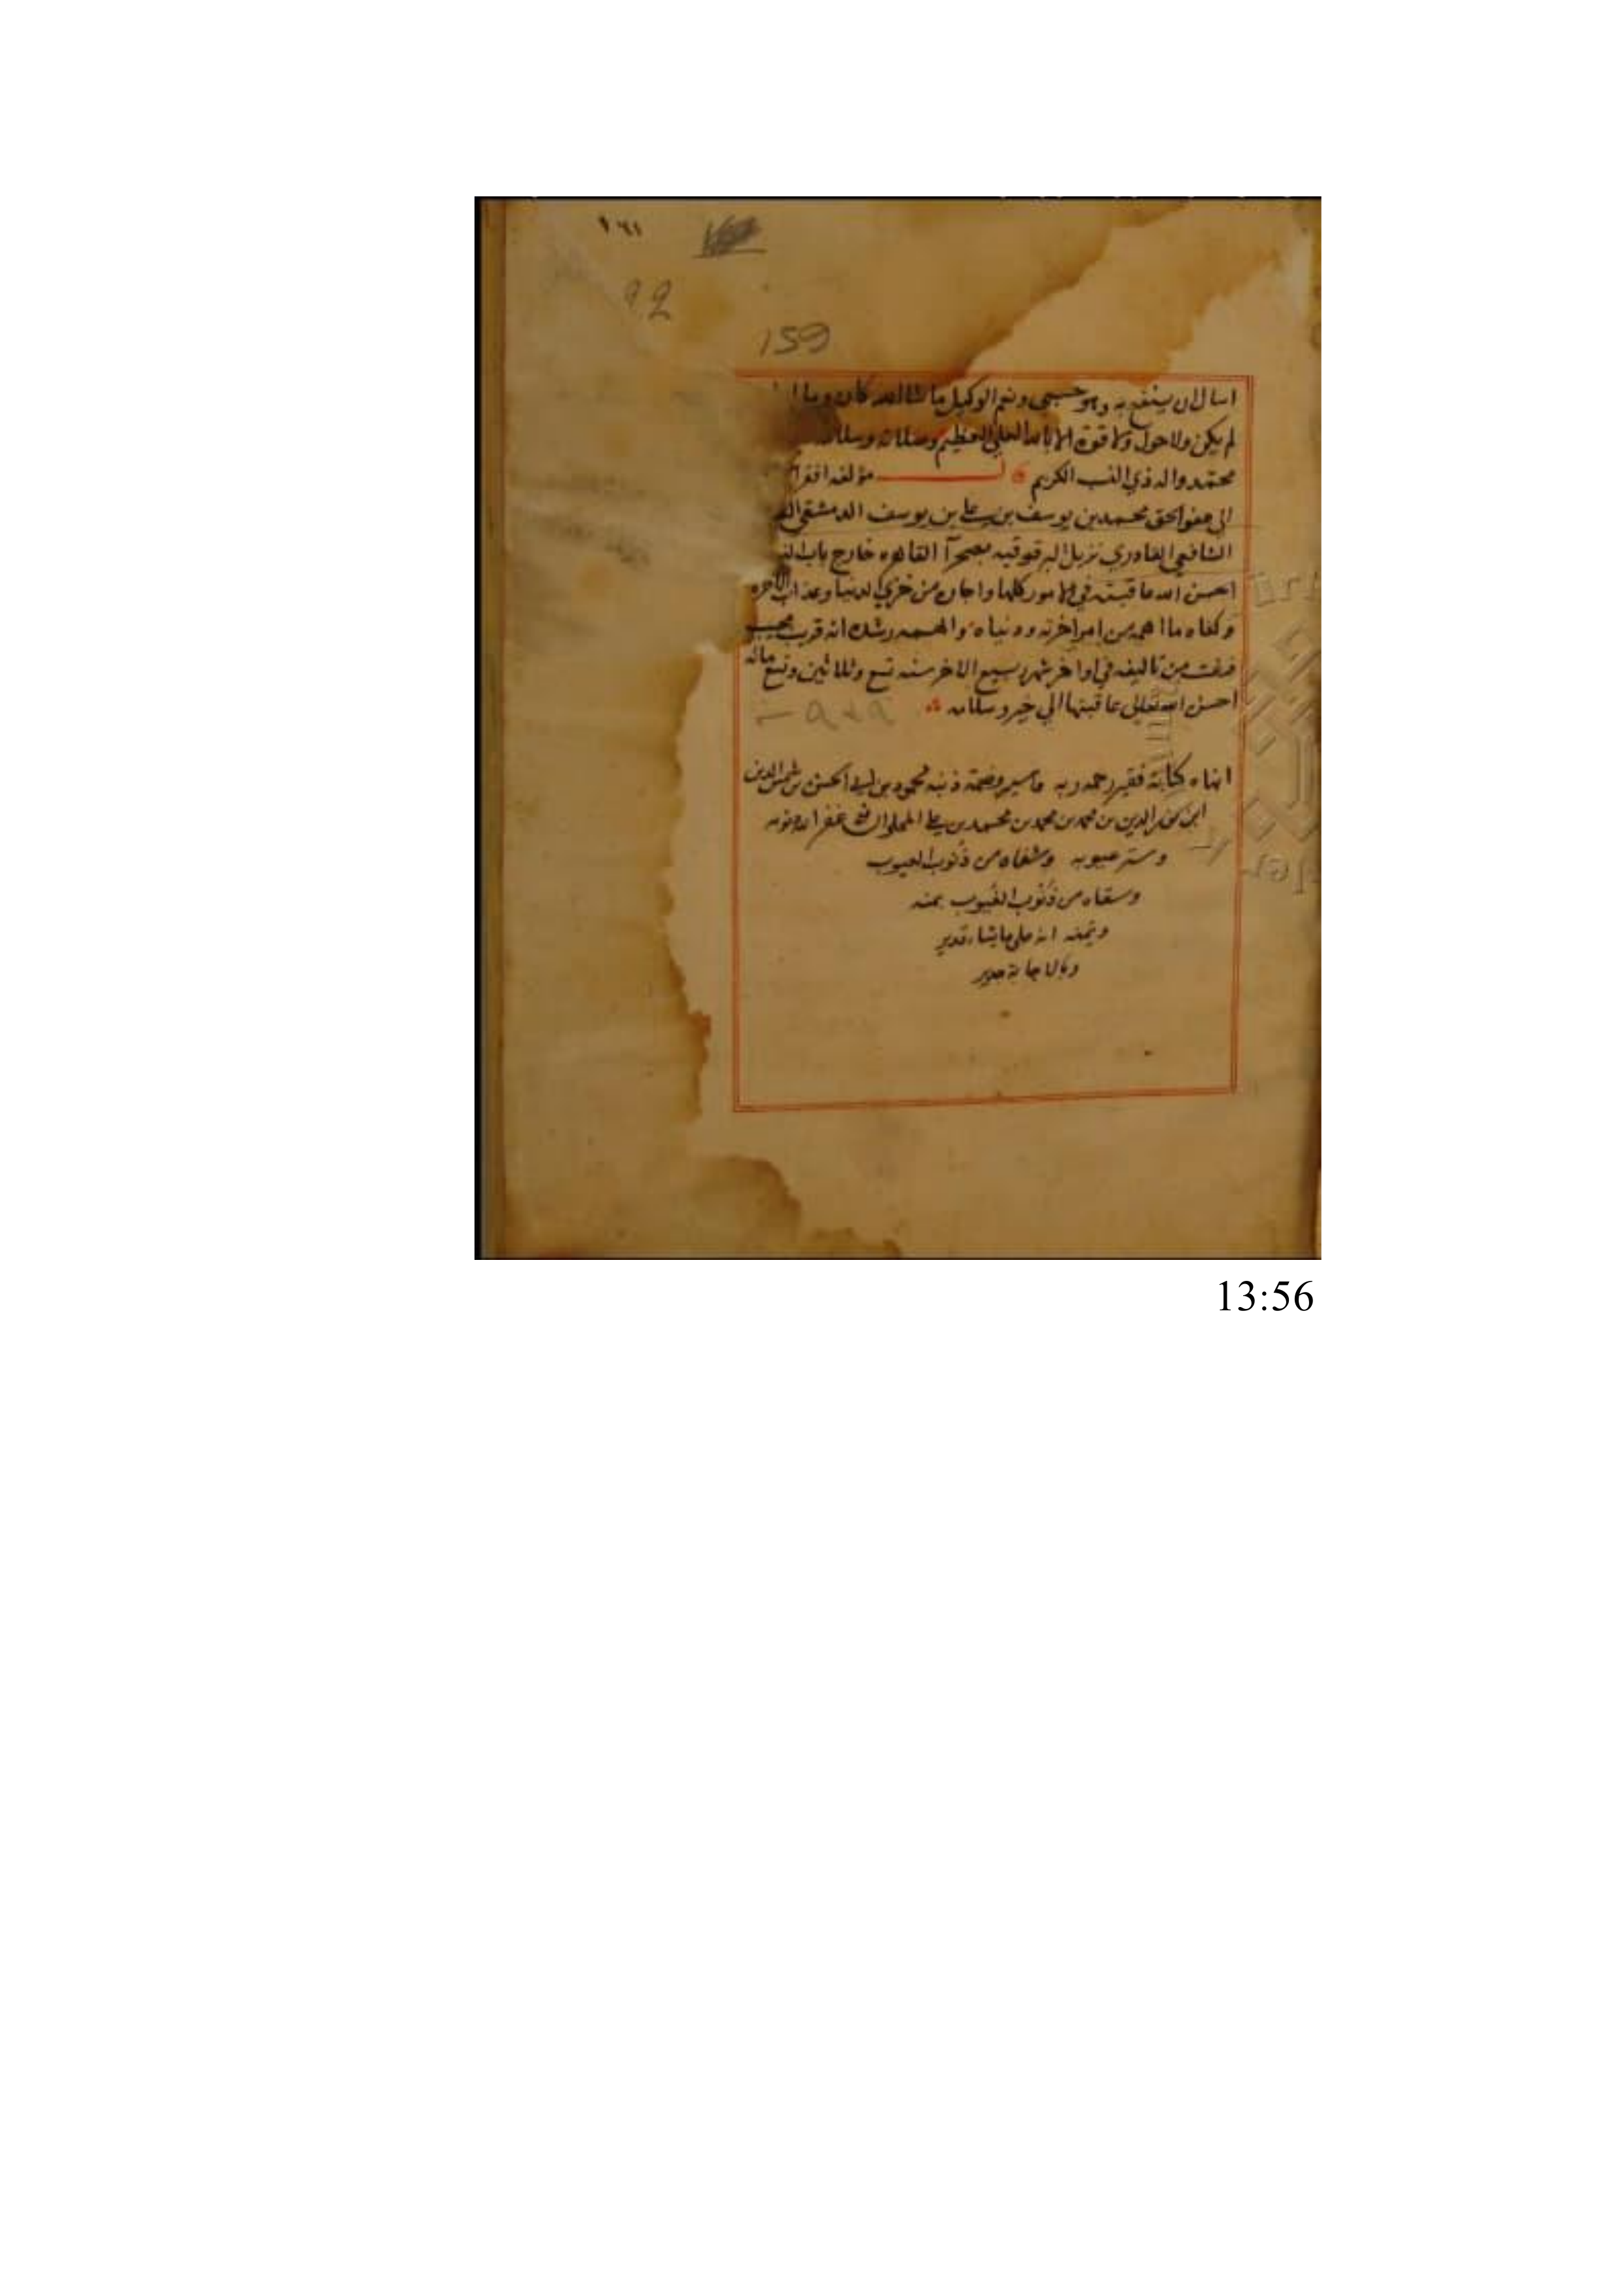 ١٦١
92
159
اسال ان ينفع به وهو حسبي ونعم الوكيل ما شا الله كان وما
لم يكن ولا حول ولا قوة الا بالله العلي العظيم وصلاته وسلامه
محمد واله ذي النسب الكريم مؤلفه افقر
الى عفو الحق محمد بن يوسف بن علي بن يوسف الدمشقي
الشافعي القادري نزيل البرقوقيه بصحرآ القاهره خارج باب
احسن الله عاقبته في الامور كلها واجاره من خزي الدنيا وعذاب الاخره
وكفاه ما اهمه من امر اخرته ودنياه والهمه رشده انه قريب مجيب
فرغت من تاليفه في اواخر شهر ربيع الاخر سنه تسع وثلاثين وتسع مائه
احسن الله تعالى عاقبتها الي خير وسلامه
٩٣٩
انهاه كتابة فقير رحمة ربه واسير وصمة ذنبه محمود بن الحسن بن شمس الدين
ابن الدين بن محمد بن محمد بن محمد بن علي المحلي غفر الله ذنوبه
وستر عيوبه وشفاه من ذنوب العيوب
وسقاه من ذنوب الغيوب بمنه
ويمنه انه على ما يشاء قدير
وبالاجابة جدير
13:56